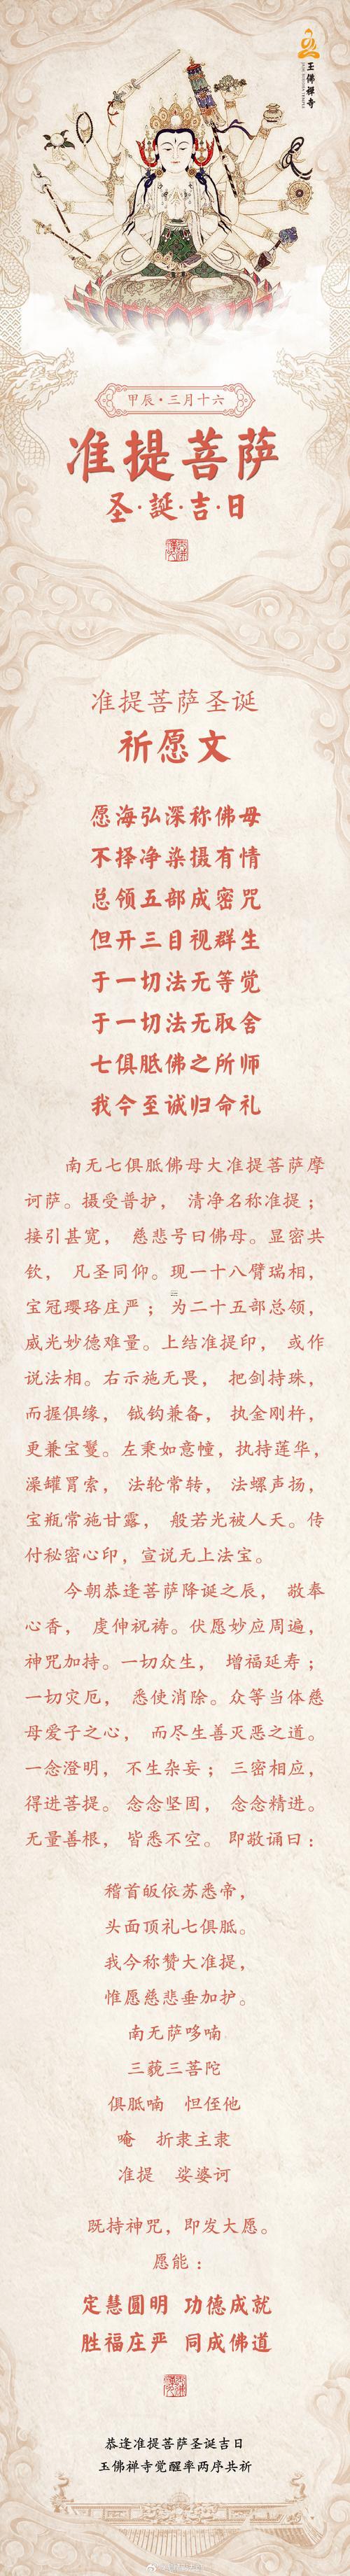 玉佛禅寺
甲辰·三月十六
准提菩萨
圣·誕·吉·日
准提菩萨圣诞
祈愿文
愿海弘深称佛母
不择净染摄有情
总领五部成密咒
但开三目视群生
于一切法无等觉
于一切法无取舍
七俱胝佛之所师
我今至诚归命礼
南无七俱胝佛母大准提菩萨摩
诃萨。摄受普护，清净名称准提；
接引甚宽，慈悲号曰佛母。显密共
钦，凡圣同仰。现一十八臂瑞相，
宝冠璎珞庄严；为二十五部总领，
威光妙德难量。上结准提印，或作
说法相。右示施无畏，把剑持珠，
而握俱缘，钺钩兼备，执金刚杵，
更兼宝鬘。左秉如意幢，执持莲华，
澡罐罥索，法轮常转，法螺声扬，
宝瓶常施甘露，般若光被人天。传
付秘密心印，宣说无上法宝。
今朝恭逢菩萨降诞之辰，敬奉
心香，虔伸祝祷。伏愿妙应周遍，
神咒加持。一切众生，增福延寿；
一切灾厄，悉使消除。众等当体慈
母爱子之心，而尽生善灭恶之道。
一念澄明，不生杂妄；三密相应，
得进菩提。念念坚固，念念精进。
无量善根，皆悉不空。即敬诵曰：
稽首皈依苏悉帝，
头面顶礼七俱胝。
我今称赞大准提，
惟愿慈悲垂加护。
南无萨哆喃
三藐三菩陀
俱胝喃 怛侄他
唵 折隶主隶
准提 娑婆诃
既持神咒，即发大愿。
愿能：
定慧圆明 功德成就
胜福庄严 同成佛道
恭逢准提菩萨圣诞吉日
玉佛禅寺觉醒率两序共祈